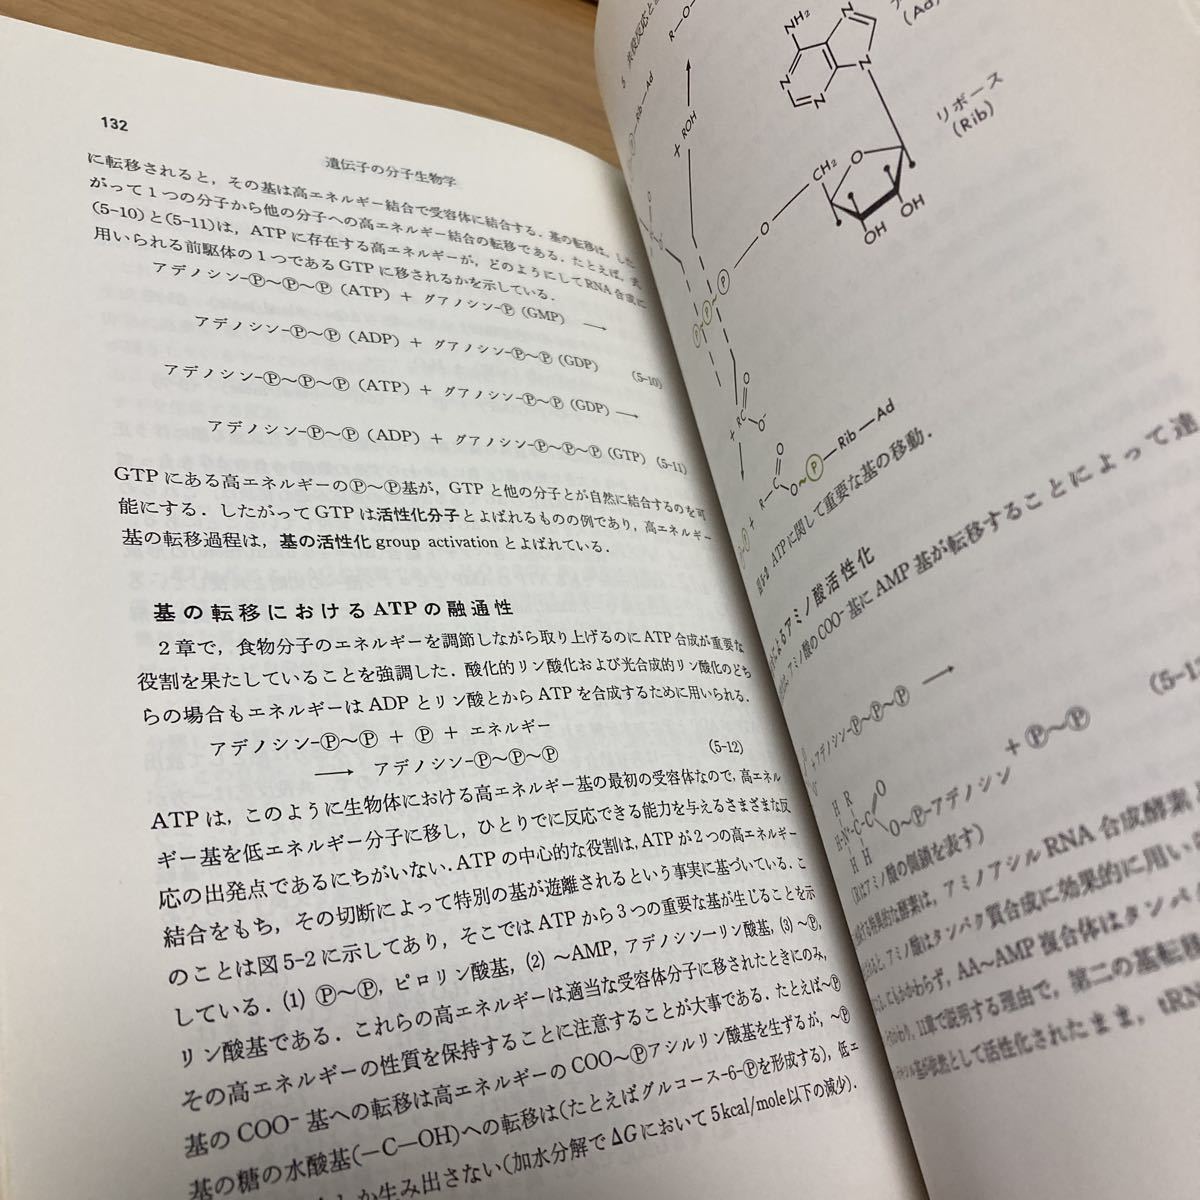 132
遺伝子の分子生物学
に転移されると，その基は高エネルギー結合で受容体に結合する．基の転移は，した
がって1つの分子から他の分子への高エネルギー結合の転移である．たとえば，式
(5-10)と(5-11)は，ATPに存在する高エネルギーが，どのようにしてRNA合成に
用いられる前駆体の1つであるGTPに移されるかを示している．
アデノシン-Ⓟ～Ⓟ～Ⓟ (ATP) + グアノシン-Ⓟ (GMP) ⟶
アデノシン-Ⓟ～Ⓟ (ADP) + グアノシン-Ⓟ～Ⓟ (GDP) (5-10)
アデノシン-Ⓟ～Ⓟ～Ⓟ (ATP) + グアノシン-Ⓟ～Ⓟ (GDP) ⟶
アデノシン-Ⓟ～Ⓟ (ADP) + グアノシン-Ⓟ～Ⓟ～Ⓟ (GTP) (5-11)
GTPにある高エネルギーのⓅ～Ⓟ基が，GTPと他の分子とが自然に結合するのを可
能にする．したがってGTPは活性化分子とよばれるものの例であり，高エネルギー
基の転移過程は，基の活性化 group activation とよばれている．
基の転移におけるATPの融通性
2章で，食物分子のエネルギーを調節しながら取り上げるのにATP合成が重要な
役割を果たしていることを強調した．酸化的リン酸化および光合成的リン酸化のどち
らの場合もエネルギーはADPとリン酸とからATPを合成するために用いられる．
アデノシン-Ⓟ～Ⓟ + Ⓟ + エネルギー
⟶ アデノシン-Ⓟ～Ⓟ～Ⓟ (5-12)
ATPは，このように生物体における高エネルギー基の最初の受容体なので，高エネル
ギー基を低エネルギー分子に移し，ひとりでに反応できる能力を与えるさまざまな反
応の出発点であるにちがいない．ATPの中心的な役割は，ATPが2つの高エネルギー
結合をもち，その切断によって特別の基が遊離されるという事実に基づいている．こ
のことは図5-2に示してあり，そこではATPから3つの重要な基が生じることを示
している．(1) Ⓟ～Ⓟ，ピロリン酸基，(2) ～AMP，アデノシン一リン酸基，(3) ～Ⓟ，
リン酸基である．これらの高エネルギーは適当な受容体分子に移されたときにのみ，
その高エネルギーの性質を保持することに注意することが大事である．たとえば～Ⓟ
基のCOO⁻基への転移は高エネルギーのCOO～Ⓟアシルリン酸基を生ずるが，～Ⓟ
基の糖の水酸基(－C—OH)への転移は(たとえばグルコース-6-Ⓟを形成する)，低エ
しか生み出さない(加水分解でΔGにおいて5kcal/mole以下の減少)．
NH₂
N
N
N
N
(Ad)
リボース
(Rib)
CH₂
O
O
OH
OH
R—O
Rib—Ad
+ ROH
Ⓟ～Ⓟ～Ⓟ
+ RC
O
O⁻
Ⓟ + R—C
O
O～Ⓟ—Rib—Ad
図5-2 ATPに関して重要な基の移動．
によるアミノ酸活性化
アミノ酸のCOO⁻基にAMP基が転移することによって達
+アデノシン-Ⓟ～Ⓟ～Ⓟ ⟶
H R
H-N⁺-C-C
O
O～Ⓟ-アデノシン + Ⓟ～Ⓟ
H H
(Rはアミノ酸の側鎖を表す)
する特異的な酵素は，アミノアシルRNA合成酵素
アミノ酸はタンパク質合成に効果的に用い
にもかかわらず，AA～AMP複合体はタンパ
11章で説明する理由で，第二の基転移
が依然として活性化されたまま，tRN